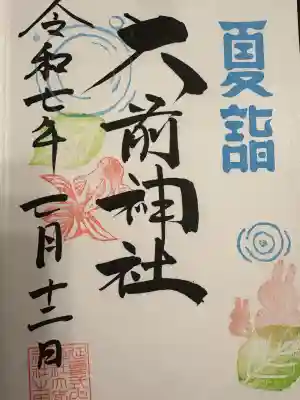 夏詣
大前神社
令和七年 七月十二日